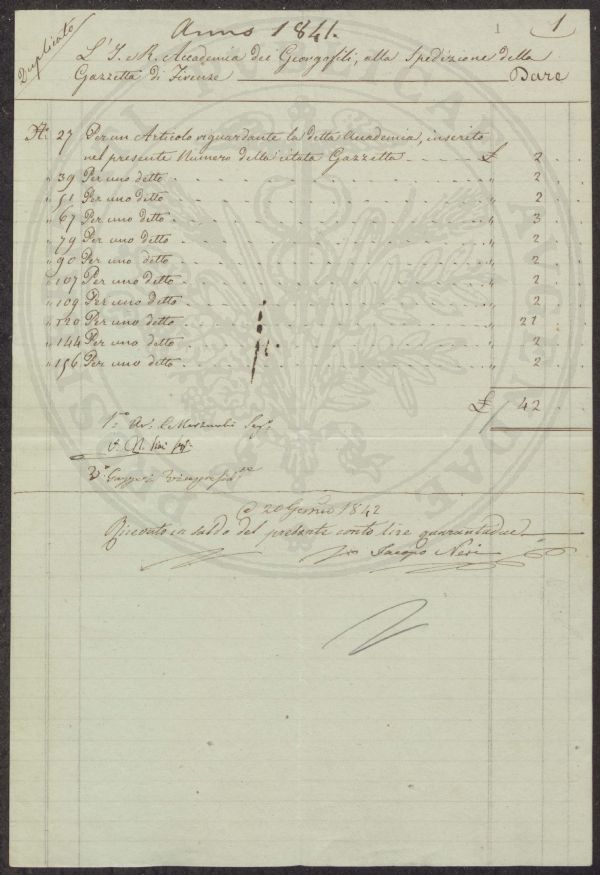 Anno 1841.
1
1
Duplicato
L'I. e R. Accademia dei Georgofili, alla Spedizione della
Gazzetta di Firenze Dare
No. 27 Per un Articolo riguardante la detta Accademia, inserito
nel presente Numero della citata Gazzetta £ 2
" 39 Per uno detto " 2
" 51 Per uno detto " 2
" 67 Per uno detto " 3
" 79 Per uno detto " 2
" 90 Per uno detto " 2
" 107 Per uno detto " 2
" 109 Per uno detto " 2
" 120 Per uno detto " 21
" 144 Per uno detto " 2
" 156 Per uno detto " 2
£ 42
20 Gennaio 1842
Ricevuto a saldo del presente conto lire quarantadue
Jacopo Neri